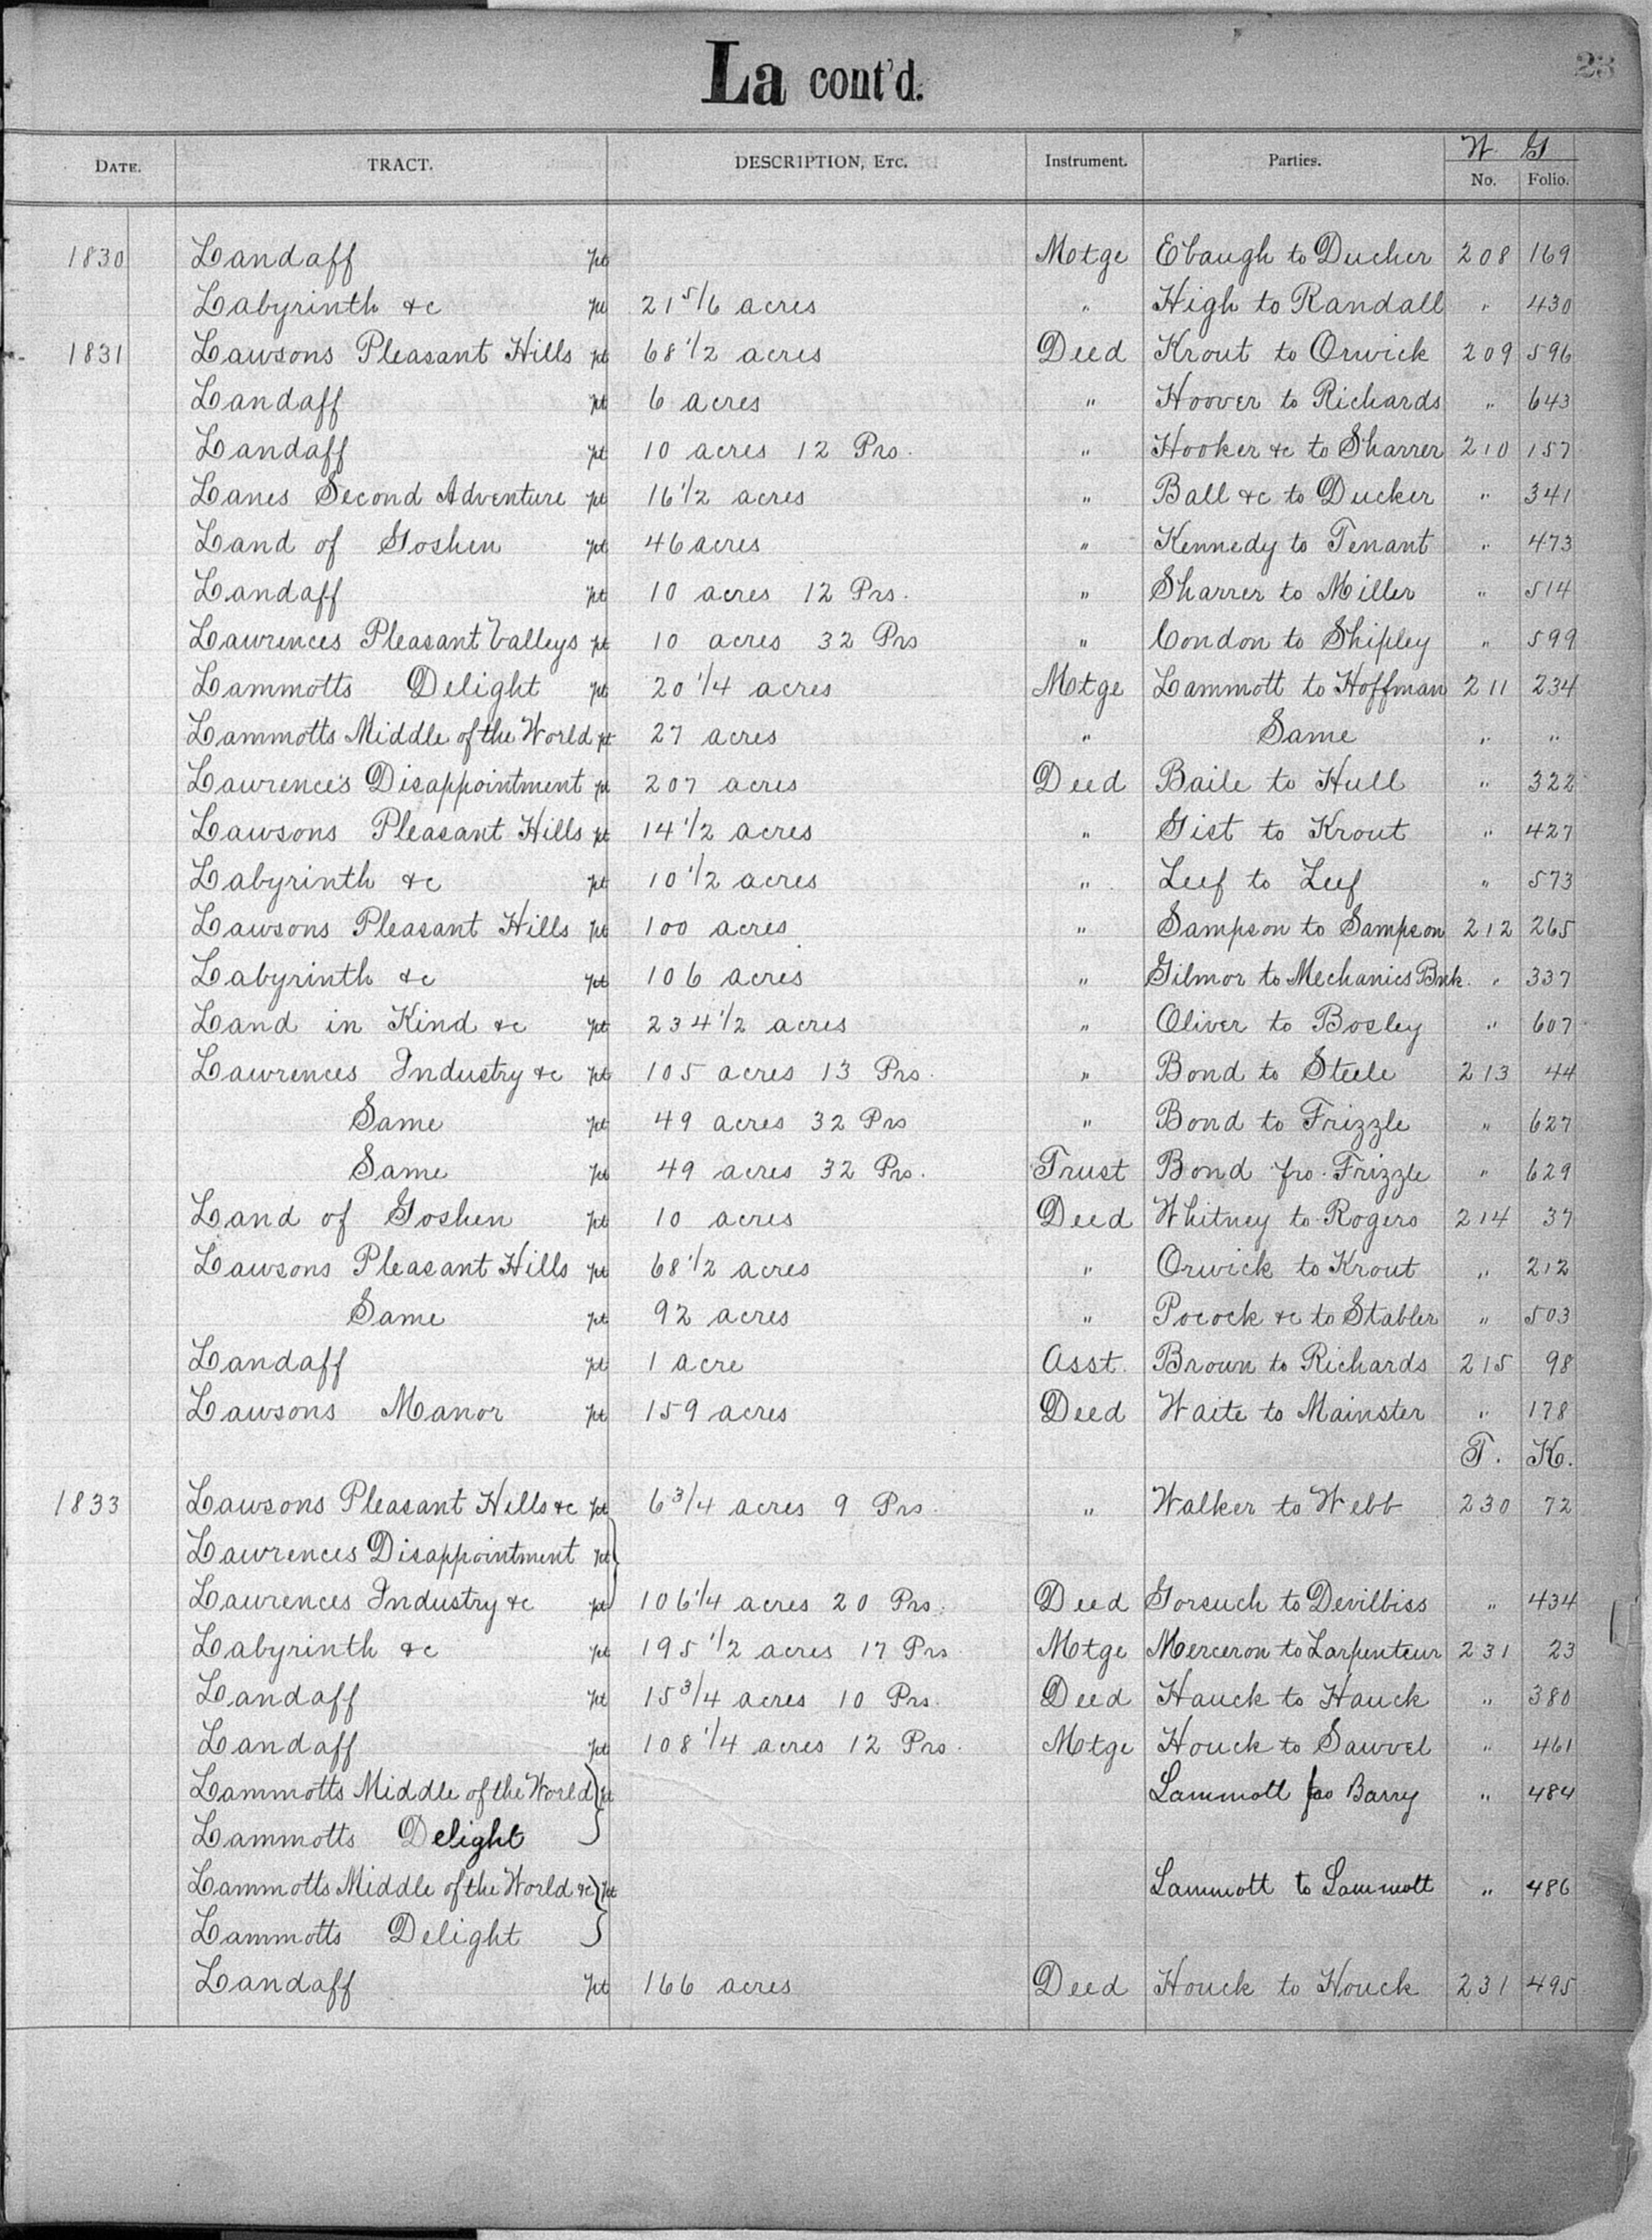 La cont'd.
23
W G
DATE. TRACT. DESCRIPTION, ETC. Instrument. Parties. No. Folio.
1830 Landaff pt Motge Ebaugh to Ducher 208 169
Labyrinth &c pt 21 5/6 acres " High to Randall " 430
1831 Lawsons Pleasant Hills pt 68 1/2 acres Deed Krout to Orwick 209 596
Landaff pt 6 acres " Hoover to Richards " 643
Landaff pt 10 acres 12 Prs. " Hooker &c to Sharrer 210 157
Lanes Second Adventure pt 16 1/2 acres " Ball &c to Ducker " 341
Land of Goshen pt 46 acres " Kennedy to Tenant " 473
Landaff pt 10 acres 12 Prs. " Sharrer to Miller " 514
Lawrences Pleasant Valleys pt 10 acres 32 Prs " Condon to Shipley " 599
Lammotts Delight pt 20 1/4 acres Motge Lammott to Hoffman 211 234
Lammotts Middle of the World pt 27 acres " Same " "
Lawrence's Disappointment pt 207 acres Deed Baile to Hull " 322
Lawsons Pleasant Hills pt 14 1/2 acres " Gist to Krout " 427
Labyrinth &c pt 10 1/2 acres " Leef to Leef " 573
Lawsons Pleasant Hills pt 100 acres " Sampson to Sampson 212 265
Labyrinth &c pt 106 acres " Gilmor to Mechanics Bnk. " 337
Land in Kind &c pt 234 1/2 acres " Oliver to Bosley " 607
Lawrences Industry &c pt 105 acres 13 Prs. " Bond to Steele 213 44
Same pt 49 acres 32 Prs " Bond to Frizzle " 627
Same pt 49 acres 32 Prs. Trust Bond fro. Frizzle " 629
Land of Goshen pt 10 acres Deed Whitney to Rogers 214 37
Lawsons Pleasant Hills pt 68 1/2 acres " Orwick to Krout " 212
Same pt 92 acres " Pocock &c to Stabler " 503
Landaff pt 1 acre Asst. Brown to Richards 215 98
Lawsons Manor pt 159 acres Deed Waite to Mainster " 178
T. K.
1833 Lawsons Pleasant Hills &c pt 6 3/4 acres 9 Prs. " Walker to Webb 230 72
Lawrences Disappointment pt
Lawrences Industry &c pt 106 1/4 acres 20 Prs. Deed Gorsuch to Devilbiss " 434
Labyrinth &c pt 195 1/2 acres 17 Prs Motge Merceron to Larpenteur 231 23
Landaff pt 15 3/4 acres 10 Prs. Deed Hauck to Hauck " 380
Landaff pt 108 1/4 acres 12 Prs. Motge Houck to Sawvel " 461
Lammotts Middle of the World pt Lammott fro Barry " 484
Lammotts Delight
Lammotts Middle of the World &c pt Lammott to Lammott " 486
Lammotts Delight
Landaff pt 166 acres Deed Houck to Houck 231 495